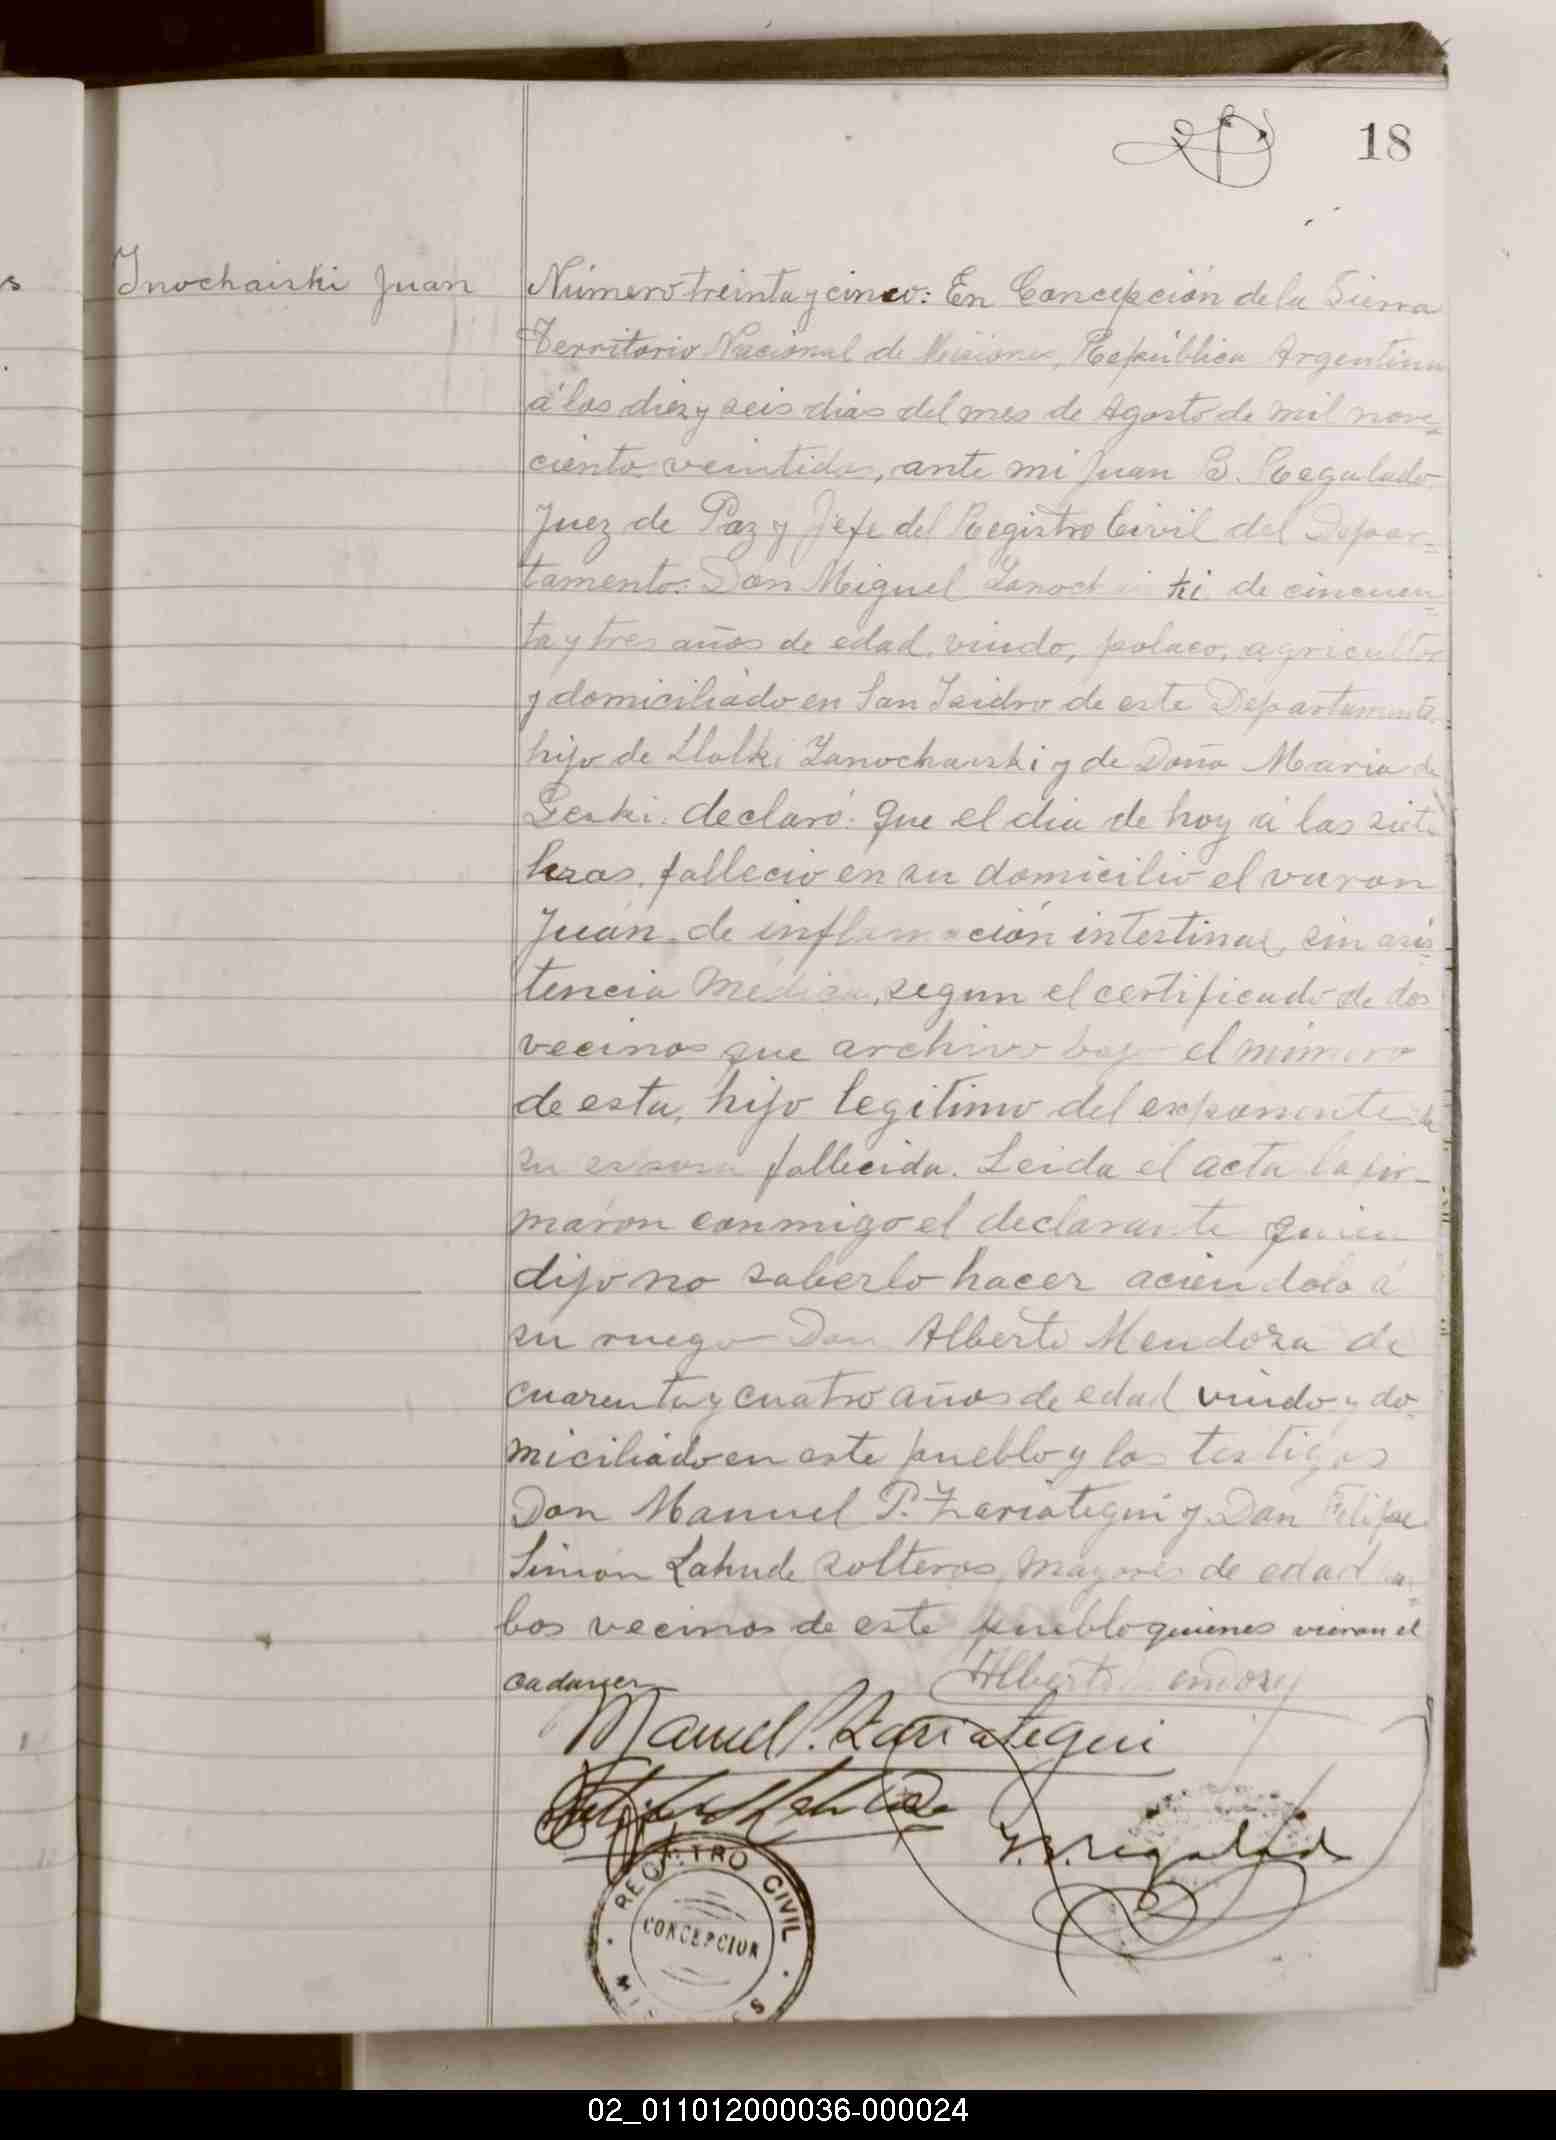 18
Inochaiski Juan
Número treinta y cinco: En Concepción de la Sierra
Territorio Nacional de Misiones, República Argentina
á los diez y seis dias del mes de Agosto de mil nove=
ciento veintidos, ante mi Juan B. Regulado
Juez de Paz y Jefe del Registro Civil del Depar=
tamento: Don Miguel de cincuen=
ta y tres años de edad, viudo, polaco, agricultor
y domiciliado en San Isidro de este Departamento
hijo de Zanochaiski y de Doña Maria de
declaró: que el dia de hoy á las siete
hras, falleció en su domicilio el varon
Juan, de inflamación intestinal, sin asis=
tencia médica, segun el certificado de dos
vecinos que archivo bajo el número
de esta, hijo legitimo del exponente y de
su esposa fallecida. Leida el acta la fir-
maron conmigo el declarante quien
dijo no saberlo hacer aciendolo á
su ruego Don Alberto Mendoza de
cuarenta y cuatro años de edad viudo y do
miciliado en este pueblo y los testigos
Don Manuel P. Zariategui y Don Felipe
Simón Lahude solteros, mayores de edad am=
bos vecinos de este pueblo quienes vieron el
cadaver
Alberto Mendoza
Manuel P. Zariategui
J. B. Regalado
REGISTRO CIVIL
CONCEPCION
MISIONES
02_011012000036-000024